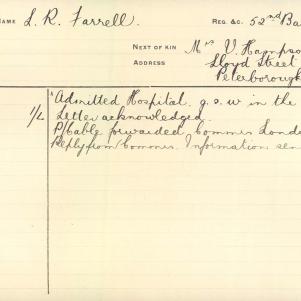 NAME L. R. Farrell. REG. &C. 52nd Ba
NEXT OF KIN Mrs V. Hampso
ADDRESS Lloyd Street
Peterborough
Admitted Hospital. g.s.w in the
1/L Letter acknowledged.
P/Cable forwarded Commr Lond
Reply from Commr. Information sen